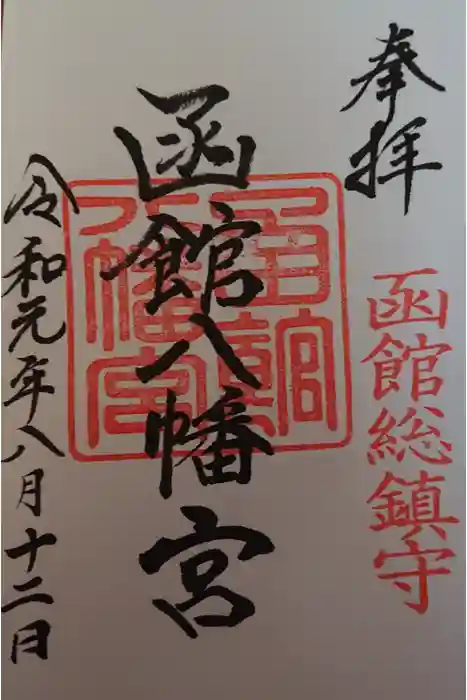 奉拝
函館総鎮守
函館八幡宮
函館
八幡宮
令和元年八月十二日